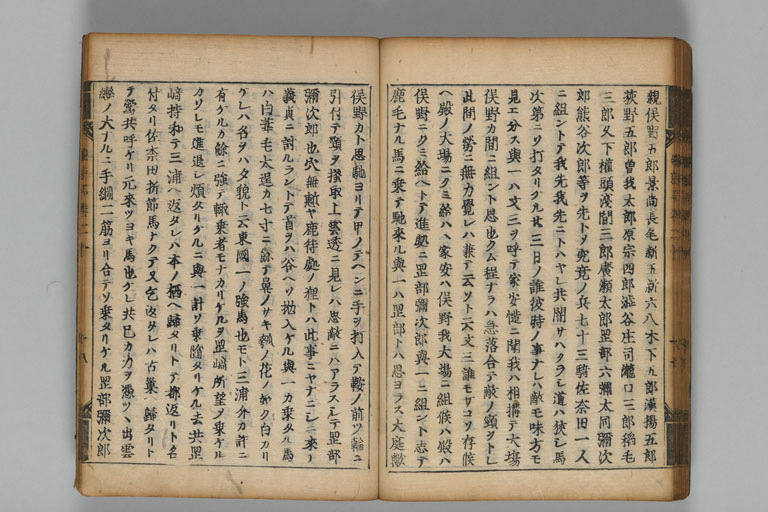 親俣野五郎景尚長毛新五新六八木下五郎漢揚五郎
荻野五郎曽我太郎原宗四郎澁谷庄司瀧口三郎稲毛
三郎久下權頭淺間三郎廣瀬太郎罡部六彌太同彌次
郎熊谷次郎等ヲ先トメ究竟ノ兵七十三騎佐奈田一人
ニ組ントテ我先我先ニトハヤレ共闇サハクラシ道ハ狭シ馬
次第ニソ打タリケル廿三日ノ誰彼時ノ事ナレハ敵モ味方モ
見エ分ス與一ハ文三ヲ呼テ家安慥ニ聞我ハ相搆テ大塲
俣野カ間ニ組ント思也クム程ナラハ急落合テ敵ノ頸ヲトレ
此間ノ勞ニ無力覺レハ兼テ云ソト云文三誰モサコソ存候
ヘ殿ノ大塲ニクミ給ハヽ家安ハ俣野我大塲ニ組候ハヽ殿ハ
俣野ニクミ給ヘトテ進ム處ニ罡部彌次郎與一ニ組ント志テ
鹿毛ナル馬ニ乗テ馳來ル與一ハ罡部トハ思ヨラス大庭歟
俣野カト思馳ヨリテ甲ノテヘンニ手ヲ打入テ鞍ノ前ツ輪ニ
引付テ頸ヲ掻取上雲透ニ見レハ思敵ニハアラスシテ罡部
彌次郎也穴無慙ヤ鹿待處ノ狸トハ此事ニヤナニシニ來テ
義貞ニ討ルラントテ首ヲハ谷ヘソ抛入ケル與一カ乗タル馬
ハ白葦毛太逞カ七寸ニ餘テ鼻ノサキ瓠ノ花ノ如ク白カリ
ケレハ名ヲハタ貌ト云東國一ノ強馬也モト三浦介カ許ニ
有ケルカ餘ニ強テ輙乗者モナカリケルヲ罡﨑所望ソ乗ケル
カソレモ進退シ煩タリケルニ與一計ソ乗随タリケル去共罡
﨑持和テ三浦ヘ返タレハ本ノ栖ヘ歸タリトテ都返リト名
付タリ佐奈田折節馬ナクテ又乞返タレハ古巣ヘ歸タリト
テ鶯共呼ケリ元來ツヨキ馬也ケレ共己カ力ヲ憑ツヽ出雲
轡ノ大ナルニ手綱二筋ヨリ合テソ乗タリケル罡部彌次郎